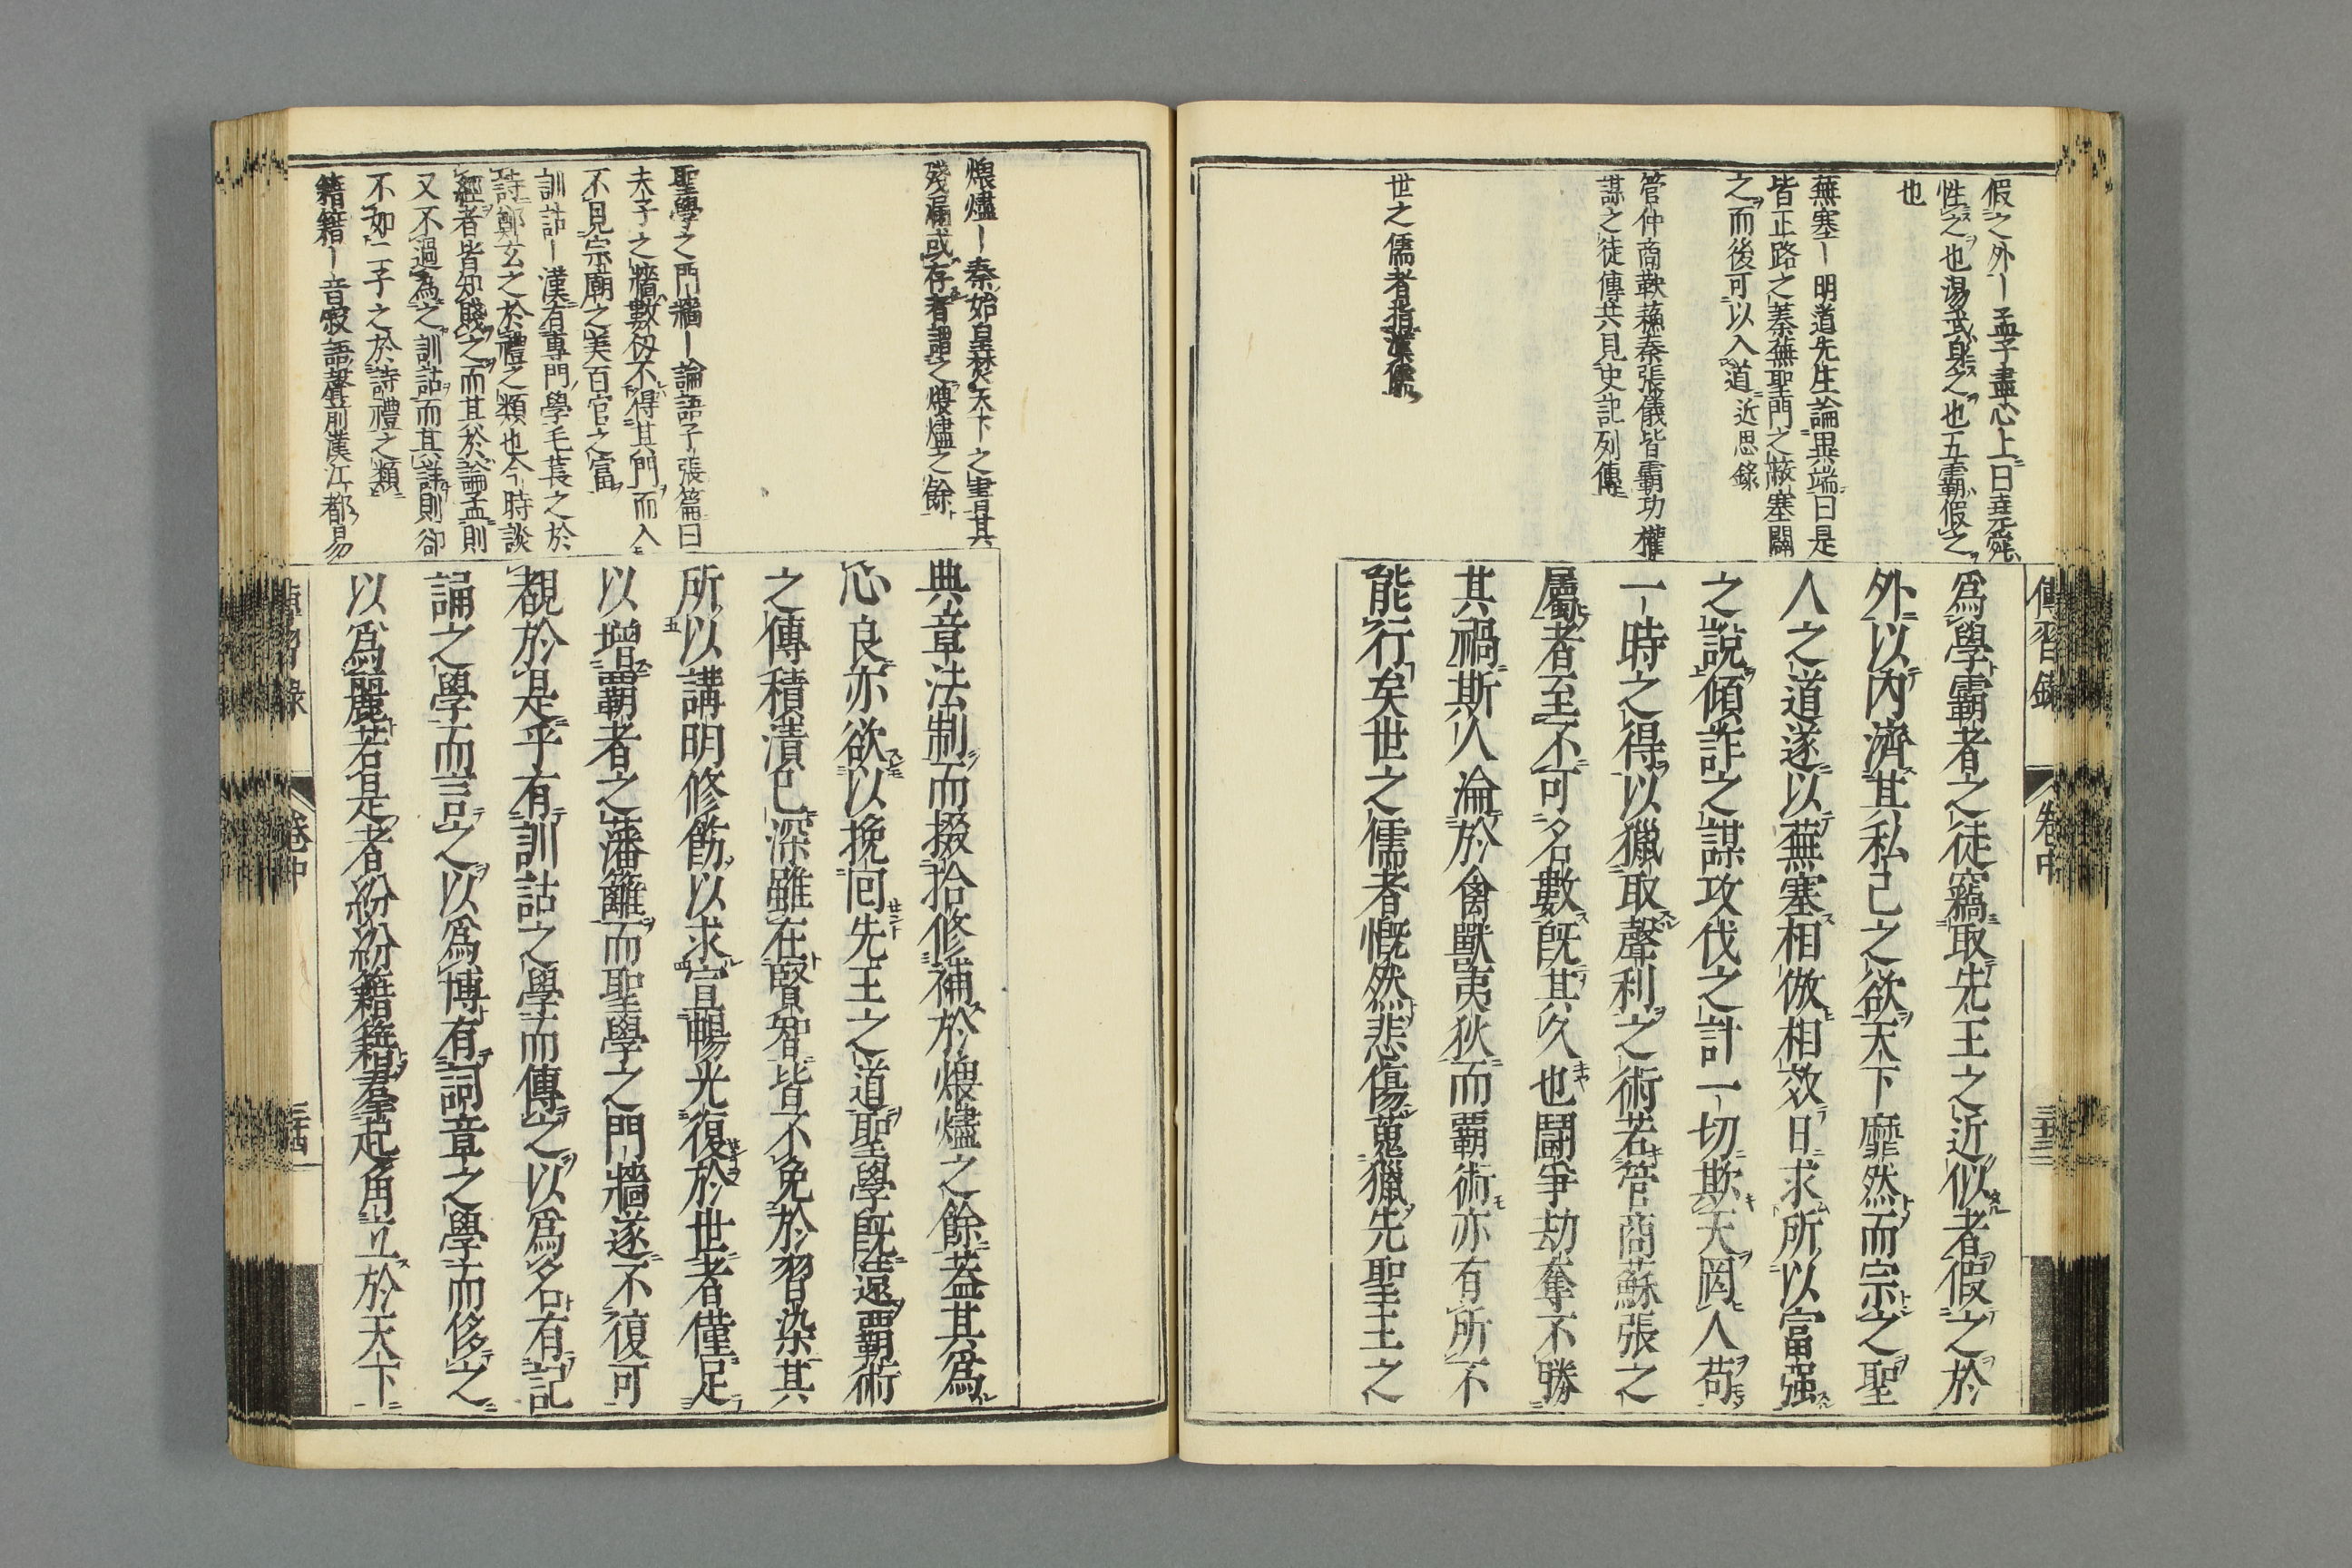 傳習録
卷中
三十三
假之外ー孟子盡心上曰堯舜
性之也湯武身之也五霸假之
也
蕪塞ー明道先生論異端曰是
皆正路之蓁蕪聖門之蔽塞闢
之而後可以入道近思錄
管仲商鞅蘓秦張儀皆霸功權
謀之徒傳共見史記列傳
世之儒者指漢儒
爲學霸者之徒竊取先王之近似者假之於
外以内濟其私己之欲天下靡然而宗之聖
人之道遂以蕪塞相倣相效日求所以富强
之說傾詐之謀攻伐之計一切欺天罔人苟
一時之得以獵取聲利之術若管商蘇張之
屬者至不可名數旣其久也鬪爭劫奪不勝
其禍斯人淪於禽獸夷狄而覇術亦有所不
能行矣世之儒者慨然悲傷蒐獵先聖王之
煨燼ー秦始皇焚天下之書其
殘漏或存者謂之煨燼之餘
聖學之門牆ー論語子張篇曰
夫子之牆數仭不得其門而入
不見宗廟之美百官之富
訓詁ー漢有專門學毛萇之於
詩鄭玄之於禮之類也今時談
經者皆知賤之而其於論孟則
又不過為之訓詁而其詳則卻
不如二子之於詩禮之類
籍籍ー音寂語聲前漢江都易
典章法制而掇拾修補於煨燼之餘葢其爲
心良亦欲以挽回先王之道聖學旣遠覇術
之傳積漬已深雖在賢智皆不免於習染其
所以講明修飭以求宣暢光復於世者僅足
以增覇者之藩籬而聖學之門牆遂不復可
覩於是乎有訓詁之學而傳之以爲名有記
誦之學而言之以爲博有詞章之學而侈之
以爲麗若是者紛紛籍籍羣起角立於天下
傳習錄
卷中
三十四